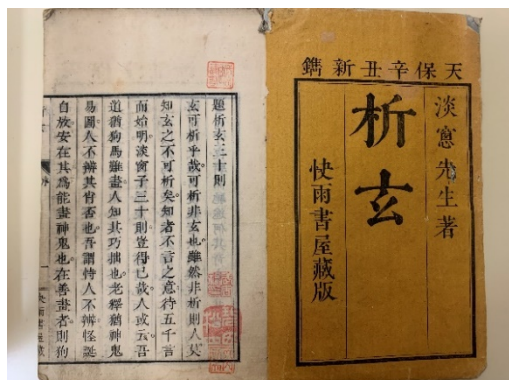 天保辛丑新鐫
淡窻先生著
析玄
快雨書屋藏版
題析玄三十則
玄可析乎哉可析非玄也雖然非析則人莫
知玄之不可析矣知者不言之意待五千言
而始明淡窻子三十則豈得已哉人或云吾
道猶狗馬難畫人知其巧拙也老釋猶神鬼
易圖人不辨其肖否也吾謂恃人不辨怪誕
自放安在其爲能畫神鬼也在善畫者則狗